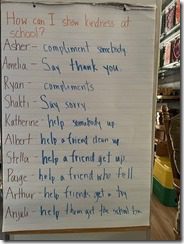 How can I show kindness at
school?
Asher - compliment somebody
Amelia - Say thank you.
Ryan - compliments
Shakti - Say sorry.
Katherine - help somebody up
Albert - help a friend clean up
Stella - help a friend get up.
Paige - help a friend who fell
Arthur - help friends get a try
Anjali - help them get the